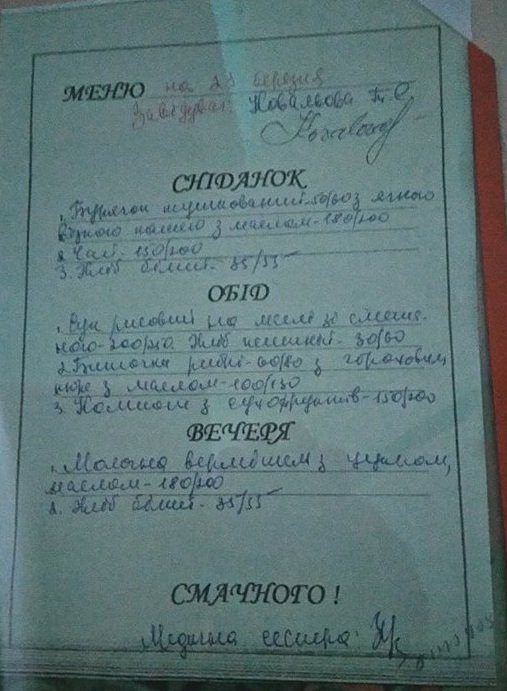 МЕНЮ на 2 березня
Завідувач: Ковальова Т. О
СНІДАНОК
1. Бурячок тушкований - 50/60 з ячного
в'язкого кашею з маслом - 180/200
2. Чай - 150/200
3. Хліб білий - 35/55
ОБІД
1. Суп рисовий на м'ясі зі смета-
ною - 200/250 Хліб пшенич - 30/60
2. Биточки рибні - 60/80 з гороховим
пюре з маслом - 100/130
3. Компот з сухофруктів - 150/200
ВЕЧЕРЯ
1. Молочна вермішель з цукром,
маслом - 180/200
2. Хліб білий - 35/55
СМАЧНОГО !
Медична сестра: